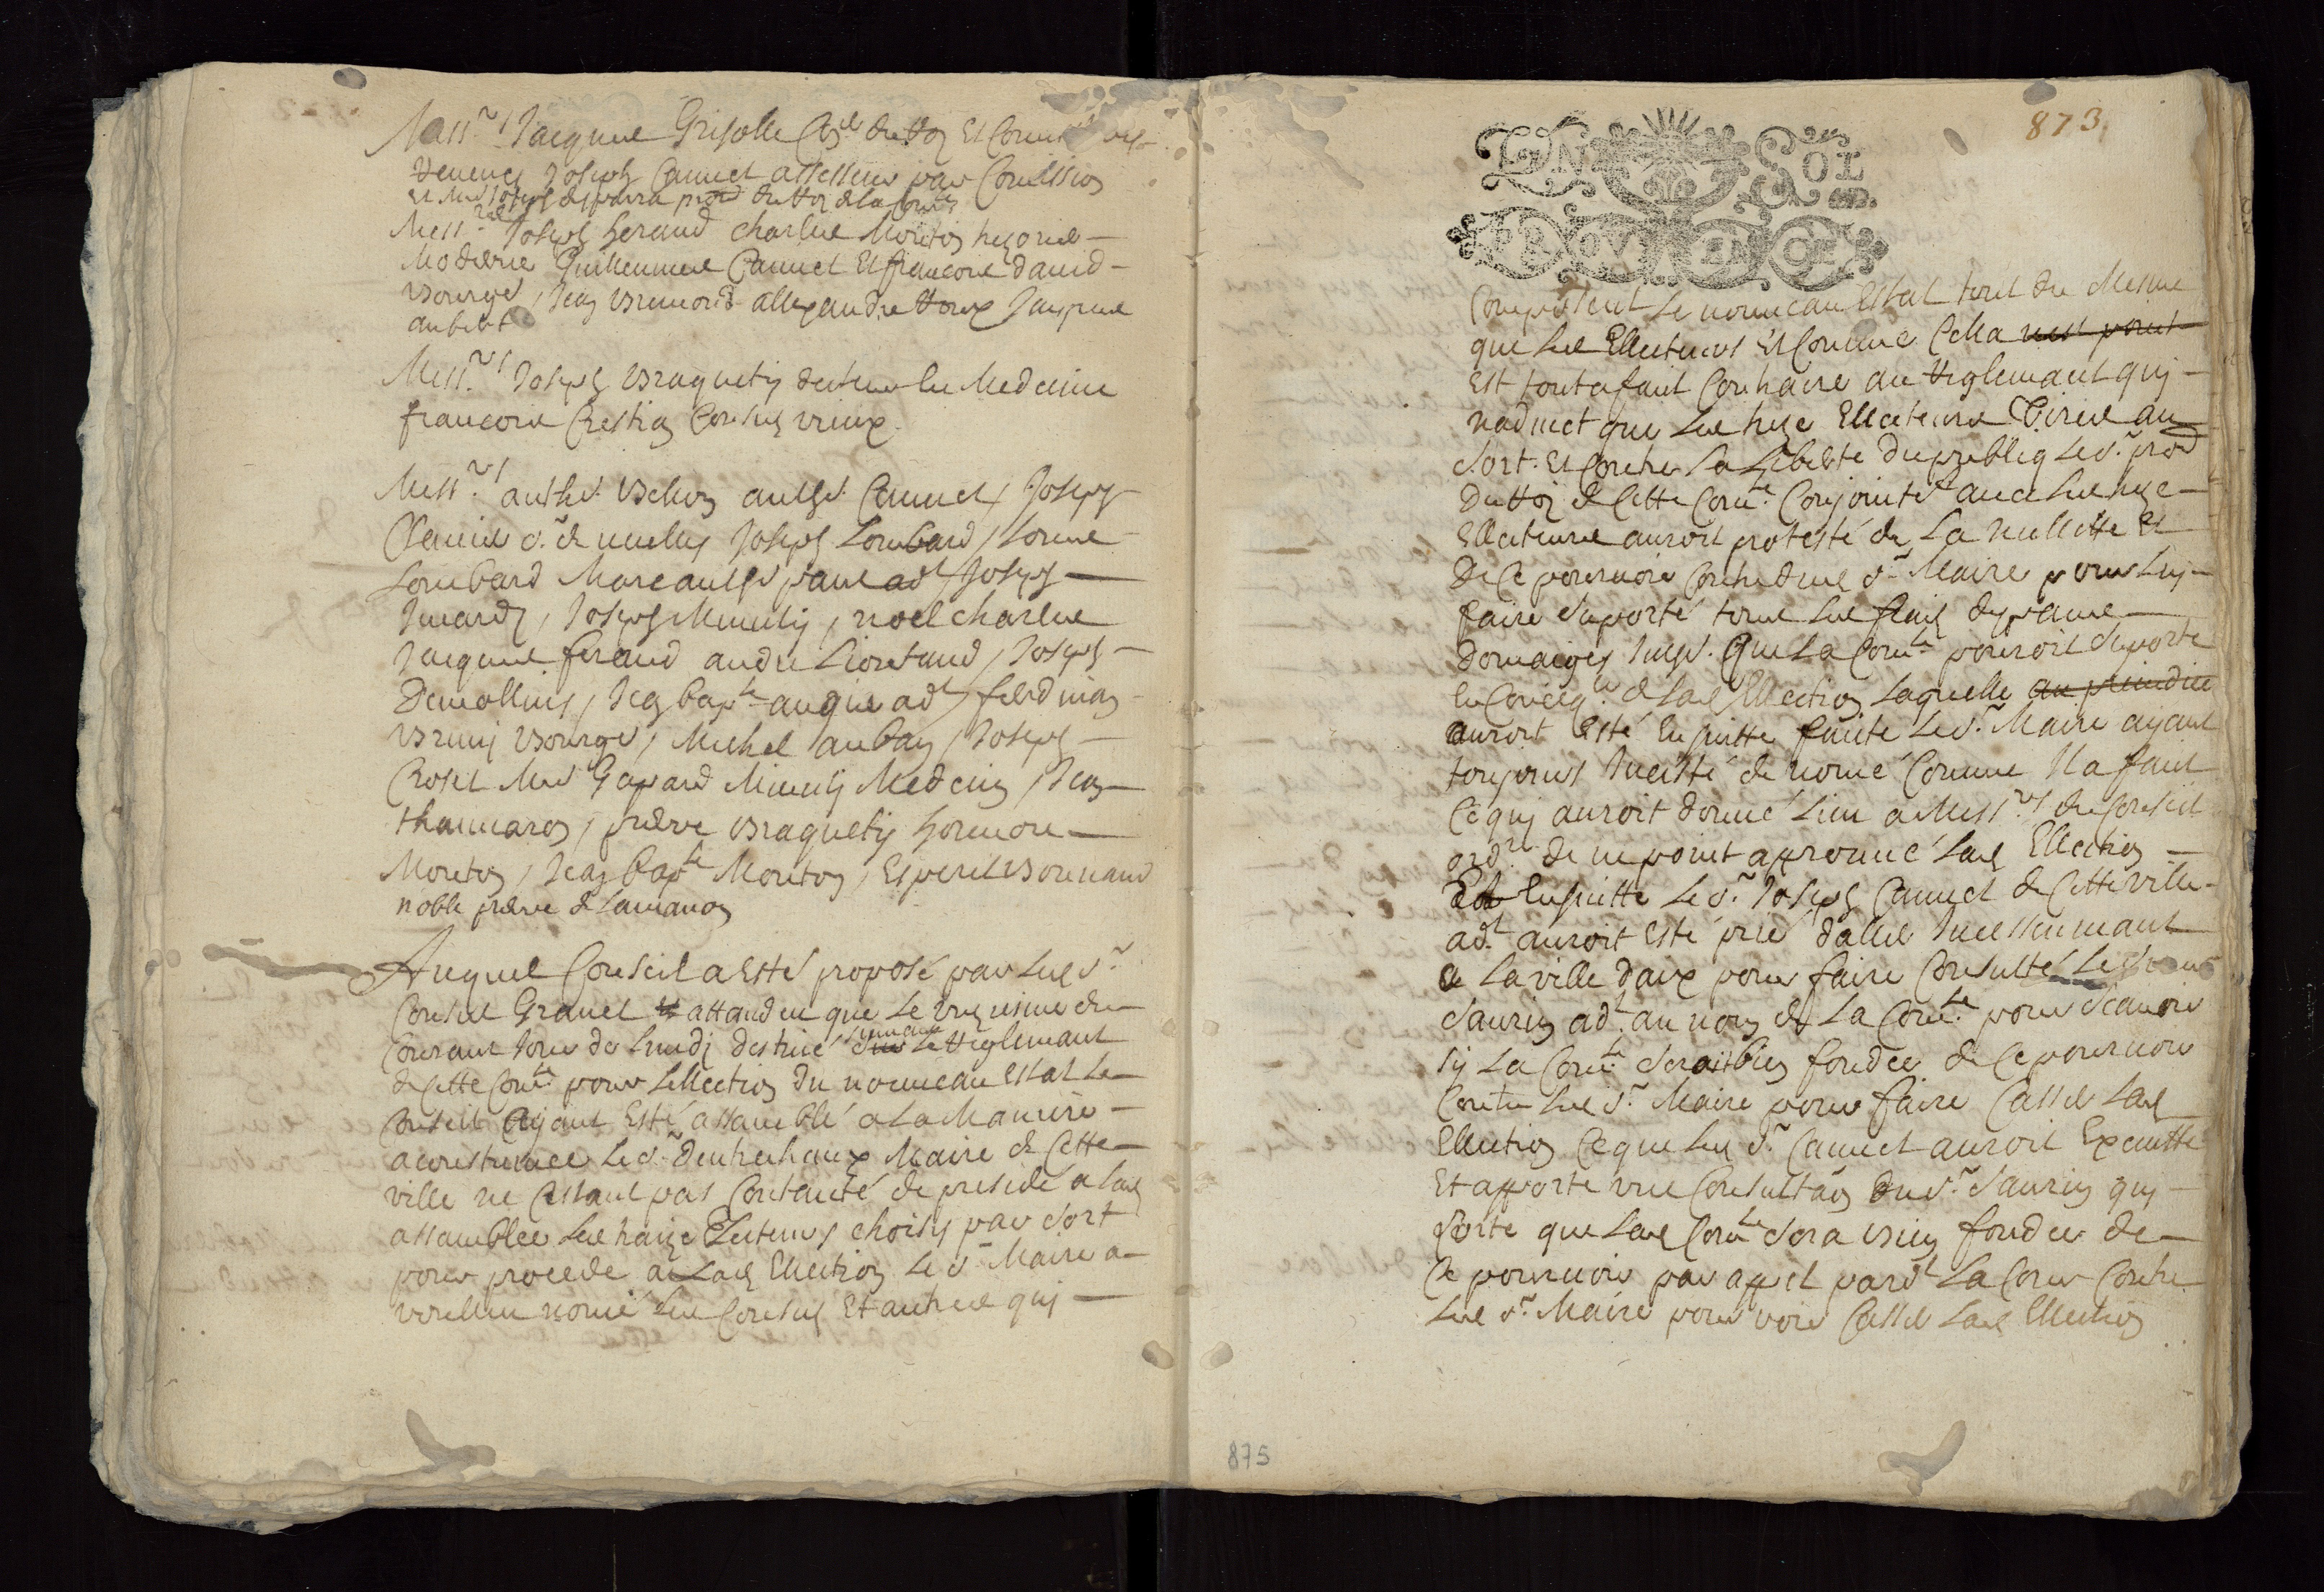 Mess.rs Jacques Grisolle Cons.er du Roy Et Comm
Joseph Camiet assesseur par Comission
et Me Joseph despaira pror du Roy de la com.té
Mess.rs Joseph heraud charles Mouton
Moderne Guilleaume Camiet Et francois david
Bourges, Jean Bremond allexandre Roux Jacques
aubert
Mess.rs Joseph Braquety docteur en Medecine
francois Crestian Consulz vieux
Mess.rs anthe. Belhon Camiet, Joseph
s.r de Joseph Lombard, Louis
Lombard Marc paul adt Joseph
Jmardy, Joseph Mimuty, noel charles
Jacques feraud andre Lieutaud, Joseph
Demollins, Jean bap.te augie adt ferdinan
Bruny Bourges, Michel auban, Joseph
Croset Me Gaspard Mimuty Medecin, Jean
thanaron, pierre Braquety honnore
Mouton, Jean bap.te Mouton, Esperit Bonnaud
noble pierre de Lamanon
Auquel Conseil a esté proposé par led s.r
Consul Gravet attandeu que le vingt uniesme du
Courant jour de lundi destiné suivant le Reglemant
de cette com.té pour lellection du nouveau Estat le
Conseil Ayant Esté assamblé a la Maniere
acoustumee le s.r dentrechaux Maire de Cette
ville ne Cestant pas Contanté de presidé a lad
assamblee les traize Electeurs choisis par sort
pour procede a Lad Ellection le s.r Maire a
voulleu nomé les Consulz Et autres qui
873
UN SOL
PROVENCE
Composent le nouveau Estat tout de Mesme
que les Ellecteurs Et Comme Cella nest point
Est tout a fait Contraire au Reglemant quy
nadmet que les treze Ellecteurs Tires au
sort. Et Contre la Liberte du publiq le s.r pror
du Roy de Cette Com.té Conjointe.t avec les treze
Ellecteurs auroit protesté de La nullitte Et
De Ce pourvoir Contre dud s.r Maire pour luy
faire suporté tous les frais depans
Domaiges Que La Com.té pourroit suporte
En de lad Ellection laquelle au preiudice
auroit Esté Ensuitte faitte Le s.r Maire ayant
toujours Incisté de nomé Comme Il a fait
Ce quy auroit donné Lieu a Mess.rs du Conseil
ord.re de ne point aprouvé Lad Ellection
Et Ensuitte Le s.r Joseph Camiet de Cette ville
adt auroit Esté prié dalle Incessemmant
a La ville daix pour faire Consulté Le sieur
saurin adt au nom de La Com.té pour scavoir
sy La Com.té serait bien fondee de Ce pourvoir
Contre led s.r Maire pour faire Casse Lad
Ellection Ce que led s.r Camiet auroit Execuitte
Et apporte une Consultaon du s.r saurin quy
porte que Lad Com.té sera bien fondee de
Ce pourvoir par appel pardt La Cour Contre
led s.r Maire pour voir Casse Lad Ellection
875